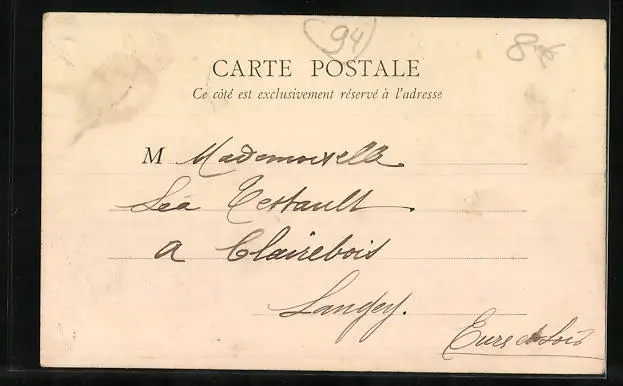 94
8 €
CARTE POSTALE
Ce côté est exclusivement réservé à l'adresse
M Mademoiselle
Léa Testault
a Clairebois
Langey.
Eure et Loir